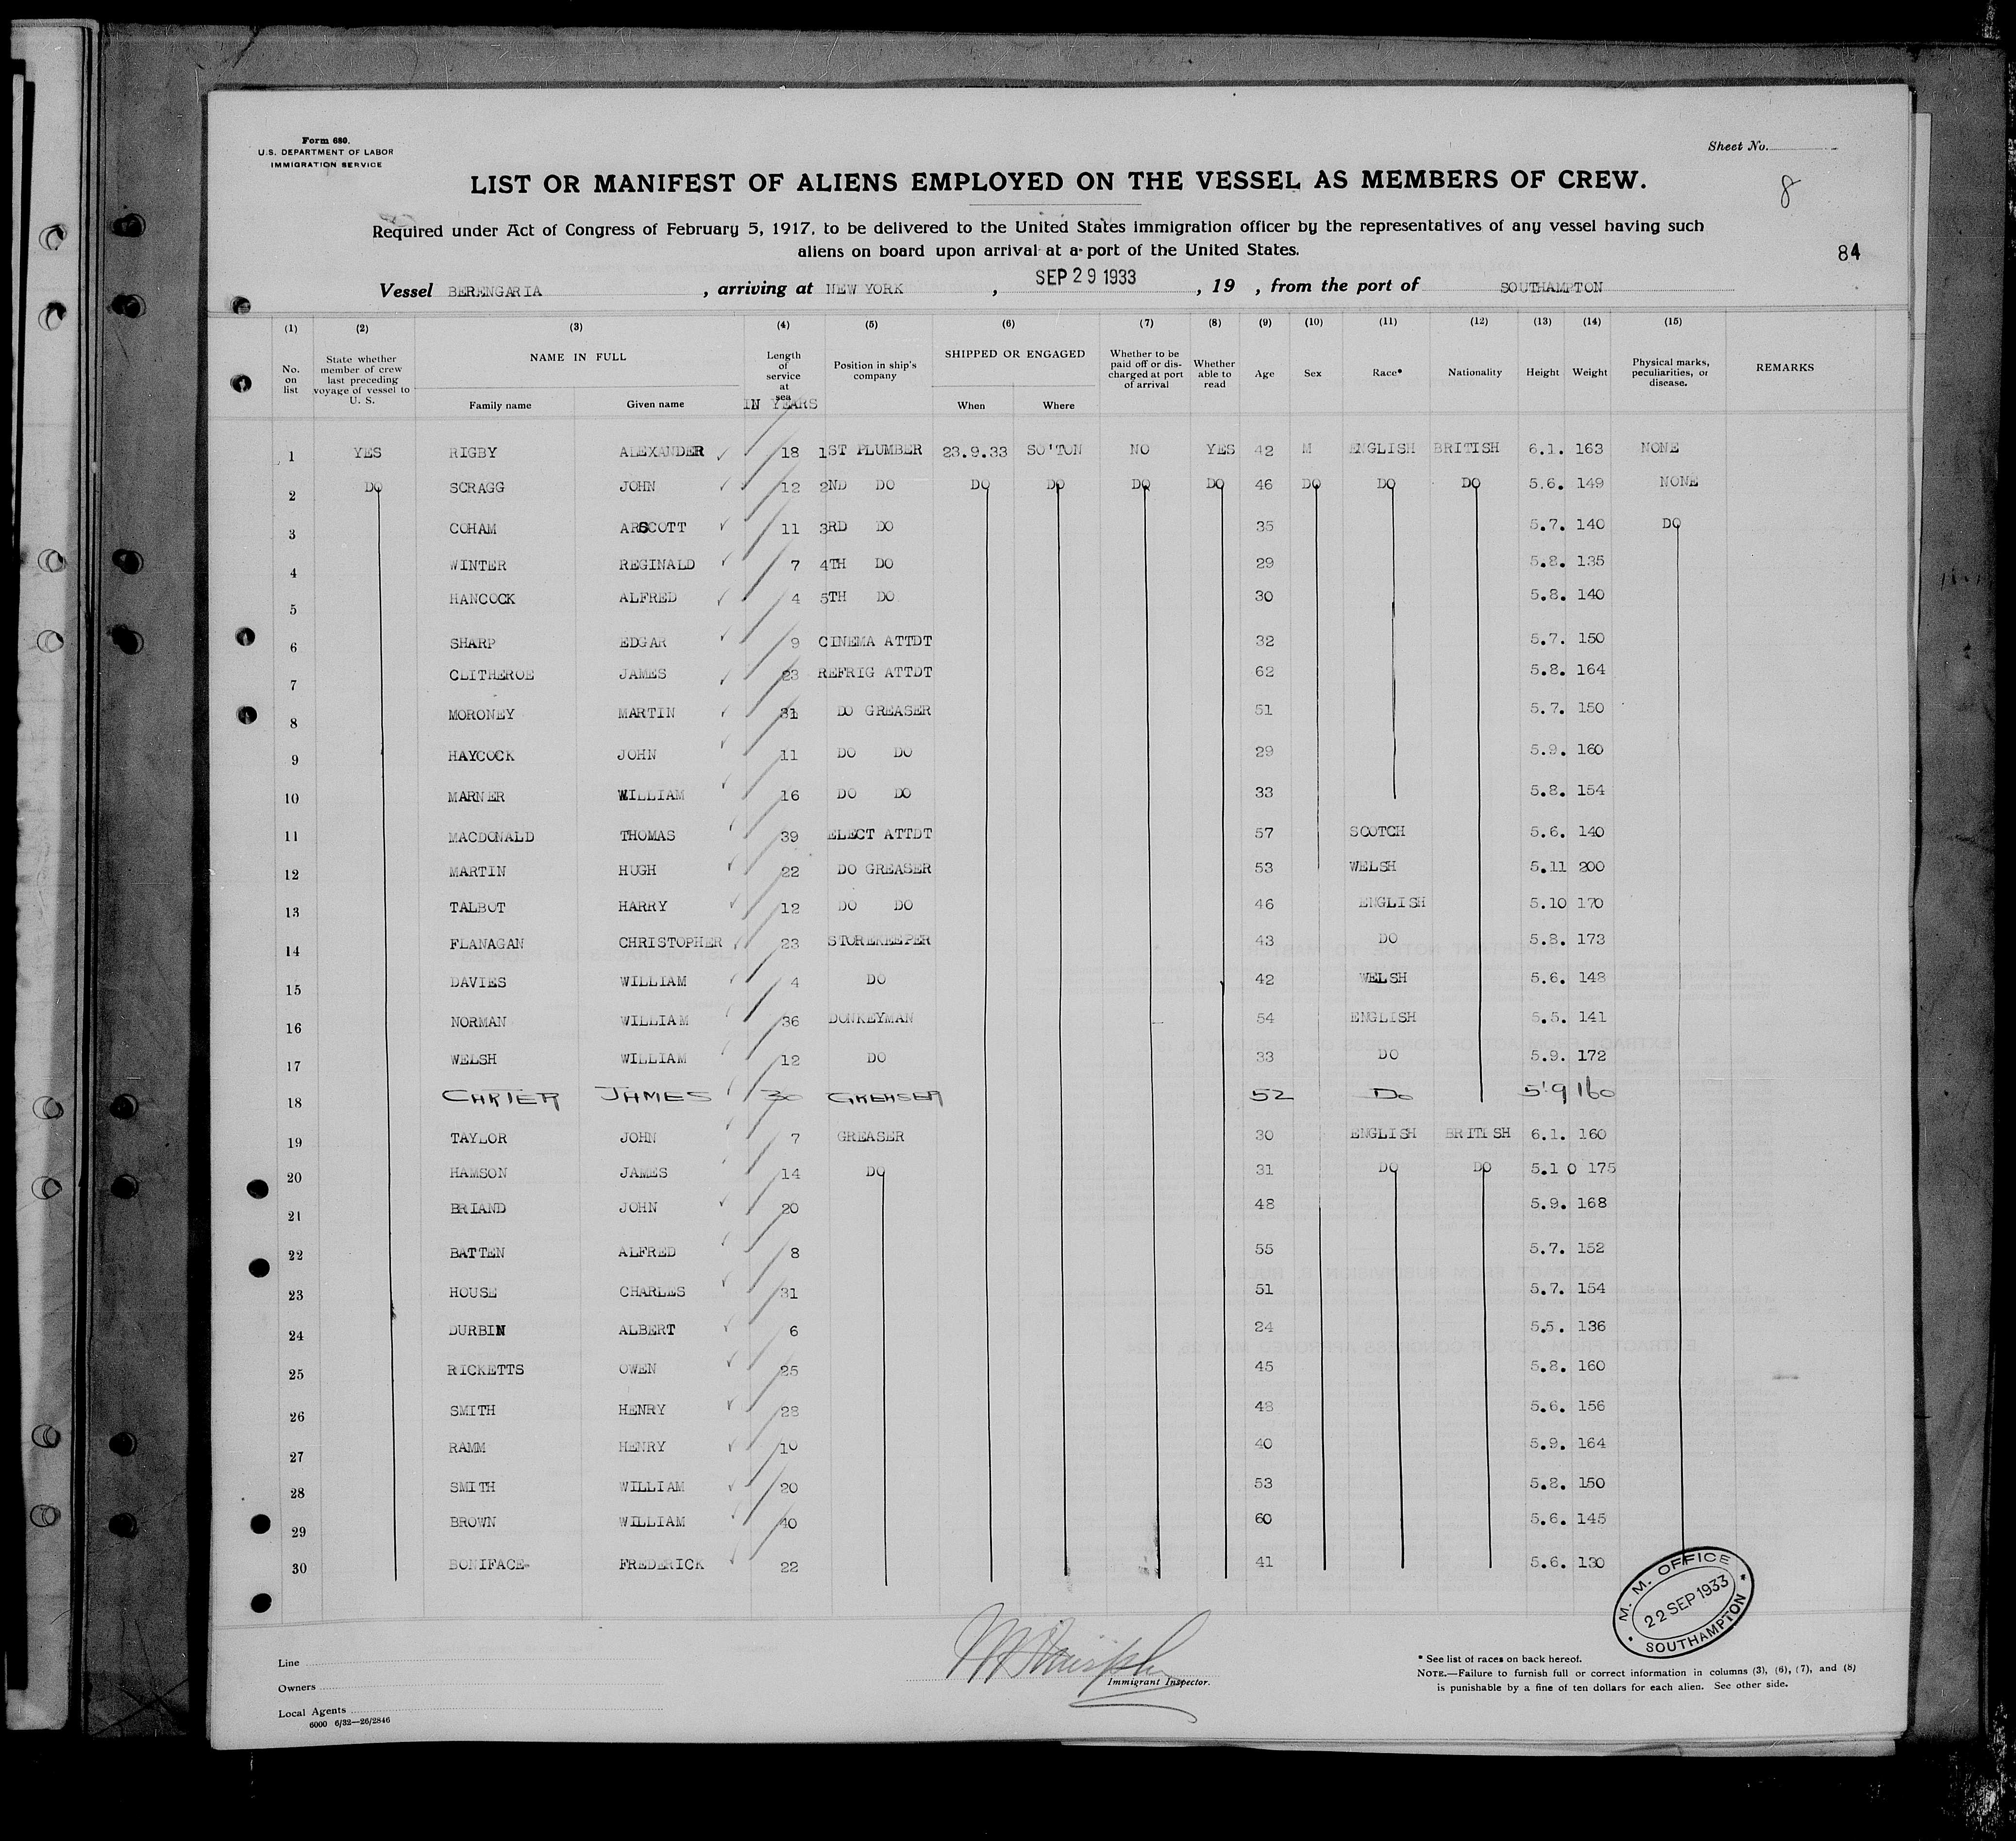 Form 680.
U.S. DEPARTMENT OF LABOR
IMMIGRATION SERVICE
Sheet No.
LIST OR MANIFEST OF ALIENS EMPLOYED ON THE VESSEL AS MEMBERS OF CREW.
8
Required under Act of Congress of February 5, 1917, to be delivered to the United States immigration officer by the representatives of any vessel having such
aliens on board upon arrival at a port of the United States.
84
Vessel BERENGARIA, arriving at NEW YORK, SEP 29 1933, 19 , from the port of SOUTHAMPTON
(1) (2) (3) (4) (5) (6) (7) (8) (9) (10) (11) (12) (13) (14) (15)
No. on list
State whether member of crew last preceding voyage of vessel to U. S.
NAME IN FULL
Family name Given name
Length of service at sea
IN YEARS
Position in ship's company
SHIPPED OR ENGAGED
When Where
Whether to be paid off or discharged at port of arrival
Whether able to read
Age Sex Race* Nationality Height Weight
Physical marks, peculiarities, or disease.
REMARKS
1 YES RIGBY ALEXANDER 18 1ST PLUMBER 23.9.33 SO'TON NO YES 42 M ENGLISH BRITISH 6.1. 163 NONE
2 DO SCRAGG JOHN 12 2ND DO DO DO DO DO 46 DO DO DO 5.6. 149 NONE
3 COHAM ARSCOTT 11 3RD DO 35 5.7. 140 DO
4 WINTER REGINALD 7 4TH DO 29 5.8. 135
5 HANCOCK ALFRED 4 5TH DO 30 5.8. 140
6 SHARP EDGAR 9 CINEMA ATTDT 32 5.7. 150
7 CLITHEROE JAMES 23 REFRIG ATTDT 62 5.8. 164
8 MORONEY MARTIN 31 DO GREASER 51 5.7. 150
9 HAYCOCK JOHN 11 DO DO 29 5.9. 160
10 MARNER WILLIAM 16 DO DO 33 5.8. 154
11 MACDONALD THOMAS 39 ELECT ATTDT 57 SCOTCH 5.6. 140
12 MARTIN HUGH 22 DO GREASER 53 WELSH 5.11 200
13 TALBOT HARRY 12 DO DO 46 ENGLISH 5.10 170
14 FLANAGAN CHRISTOPHER 23 STOREKEEPER 43 DO 5.8. 173
15 DAVIES WILLIAM 4 DO 42 WELSH 5.6. 148
16 NORMAN WILLIAM 36 DONKEYMAN 54 ENGLISH 5.5. 141
17 WELSH WILLIAM 12 DO 33 DO 5.9. 172
18 CARTER JAMES 30 GREASER 52 Do 5'9 160
19 TAYLOR JOHN 7 GREASER 30 ENGLISH BRITISH 6.1. 160
20 HAMSON JAMES 14 DO 31 DO DO 5.1 0 175
21 BRIAND JOHN 20 48 5.9. 168
22 BATTEN ALFRED 8 55 5.7. 152
23 HOUSE CHARLES 31 51 5.7. 154
24 DURBIN ALBERT 6 24 5.5. 136
25 RICKETTS OWEN 25 45 5.8. 160
26 SMITH HENRY 28 48 5.6. 156
27 RAMM HENRY 10 40 5.9. 164
28 SMITH WILLIAM 20 53 5.8. 150
29 BROWN WILLIAM 40 60 5.6. 145
30 BONIFACE FREDERICK 22 41 5.6. 130
M. M. OFFICE
22 SEP 1933
SOUTHAMPTON
Line
Owners
Local Agents
6000 6/32—26/2846
Immigrant Inspector.
* See list of races on back hereof.
NOTE.—Failure to furnish full or correct information in columns (3), (6), (7), and (8)
is punishable by a fine of ten dollars for each alien. See other side.